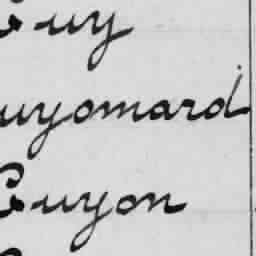 Guy
Guyomard
Guyon